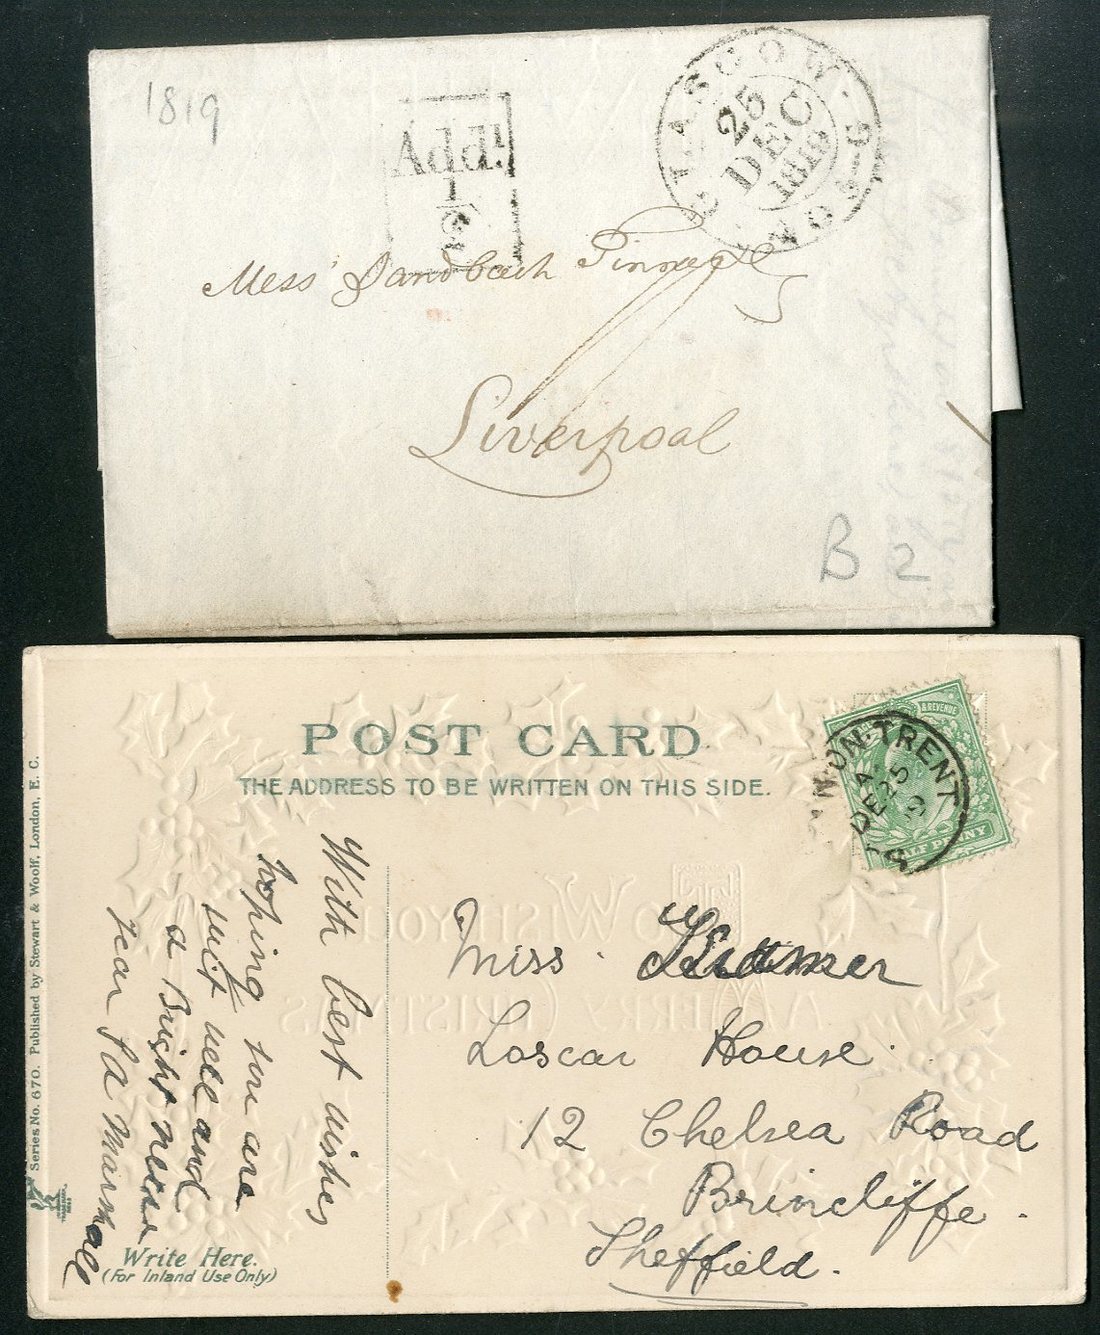 1819
Addl
1/2
GLASGOW
25
DEC
1819
Mess Sandbach Tinne &
Liverpool
B 2
POST CARD
THE ADDRESS TO BE WRITTEN ON THIS SIDE.
& REVENUE
N-ON-TRENT
A
DE 25
HALF PENNY
Series No. 670. Published by Stewart & Woolf, London, E. C.
With best wishes
hoping you are
quit well and
a Bright new
year
Write Here.
(For Inland Use Only)
TO WISH YOU
A MERRY CHRISTMAS
Miss
Loscar House.
12 Chelsea Road
Brincliffe.
Sheffield.